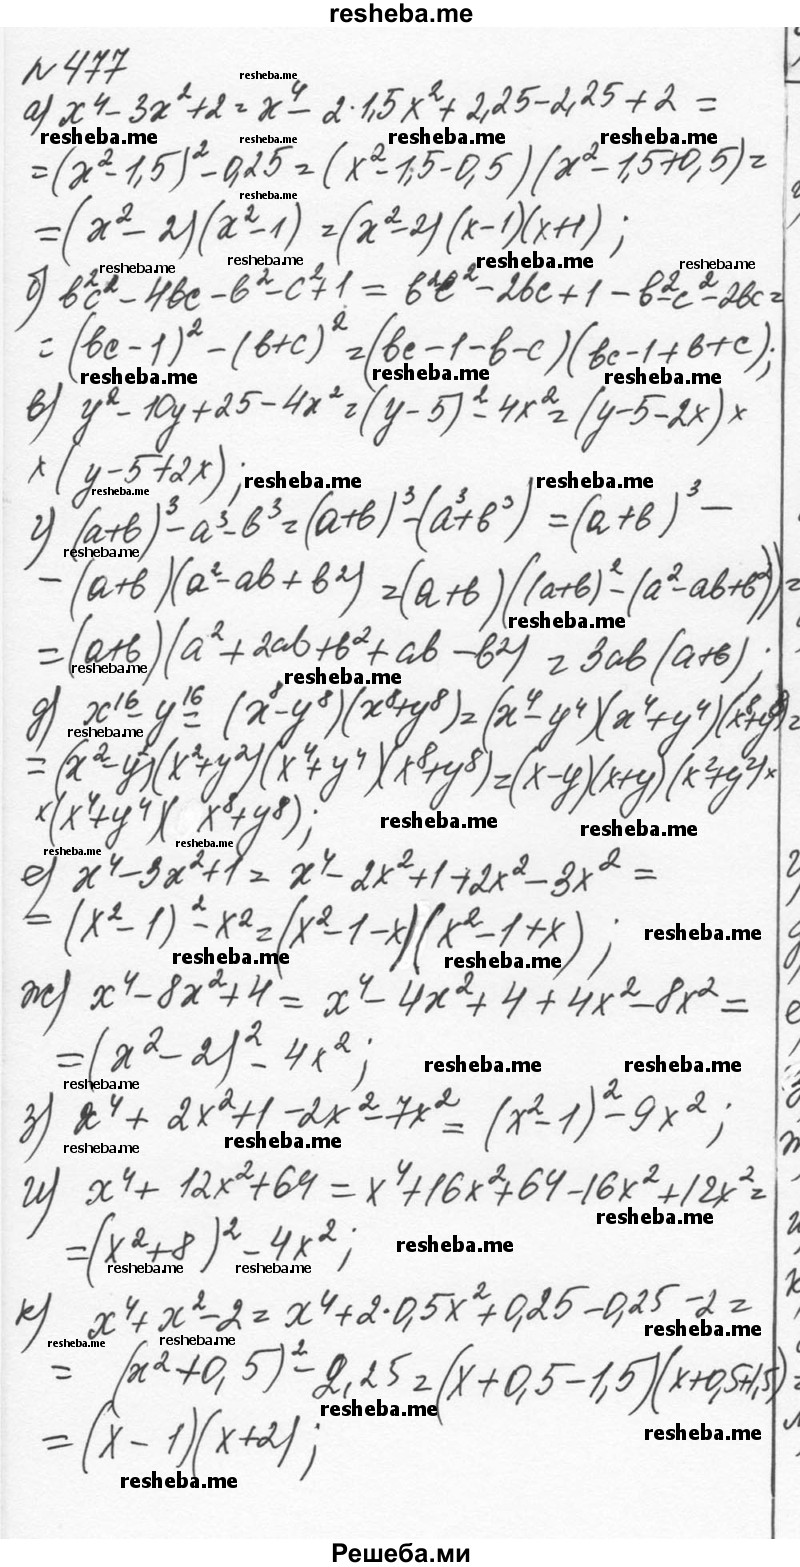 resheba.me
№477
а) x⁴ - 3x² + 2 = x⁴ - 2·1,5x² + 2,25 - 2,25 + 2 =
= (x² - 1,5)² - 0,25 = (x² - 1,5 - 0,5)(x² - 1,5 + 0,5) =
= (x² - 2)(x² - 1) = (x² - 2)(x - 1)(x + 1);
б) b²c² - 4bc - b² - c² + 1 = b²c² - 2bc + 1 - b² - c² - 2bc =
= (bc - 1)² - (b + c)² = (bc - 1 - b - c)(bc - 1 + b + c);
в) y² - 10y + 25 - 4x² = (y - 5)² - 4x² = (y - 5 - 2x) ×
× (y - 5 + 2x);
г) (a+b)³ - a³ - b³ = (a+b)³ - (a³ + b³) = (a+b)³ -
- (a+b)(a² - ab + b²) = (a+b)((a+b)² - (a² - ab + b²)) =
= (a+b)(a² + 2ab + b² + ab - b²) = 3ab(a+b);
д) x¹⁶ - y¹⁶ = (x⁸ - y⁸)(x⁸ + y⁸) = (x⁴ - y⁴)(x⁴ + y⁴)(x⁸ + y⁸) =
= (x² - y²)(x² + y²)(x⁴ + y⁴)(x⁸ + y⁸) = (x - y)(x + y)(x² + y²) ×
× (x⁴ + y⁴)(x⁸ + y⁸);
е) x⁴ - 3x² + 1 = x⁴ - 2x² + 1 + 2x² - 3x² =
= (x² - 1)² - x² = (x² - 1 - x)(x² - 1 + x);
ж) x⁴ - 8x² + 4 = x⁴ - 4x² + 4 + 4x² - 8x² =
= (x² - 2)² - 4x²;
з) x⁴ + 2x² + 1 - 2x² - 7x² = (x² - 1)² - 9x²;
и) x⁴ + 12x² + 64 = x⁴ + 16x² + 64 - 16x² + 12x² =
= (x² + 8)² - 4x²;
к) x⁴ + x² - 2 = x⁴ + 2·0,5x² + 0,25 - 0,25 - 2 =
= (x² + 0,5)² - 2,25 = (x + 0,5 - 1,5)(x + 0,5 + 1,5) =
= (x - 1)(x + 2);
Решеба.ми